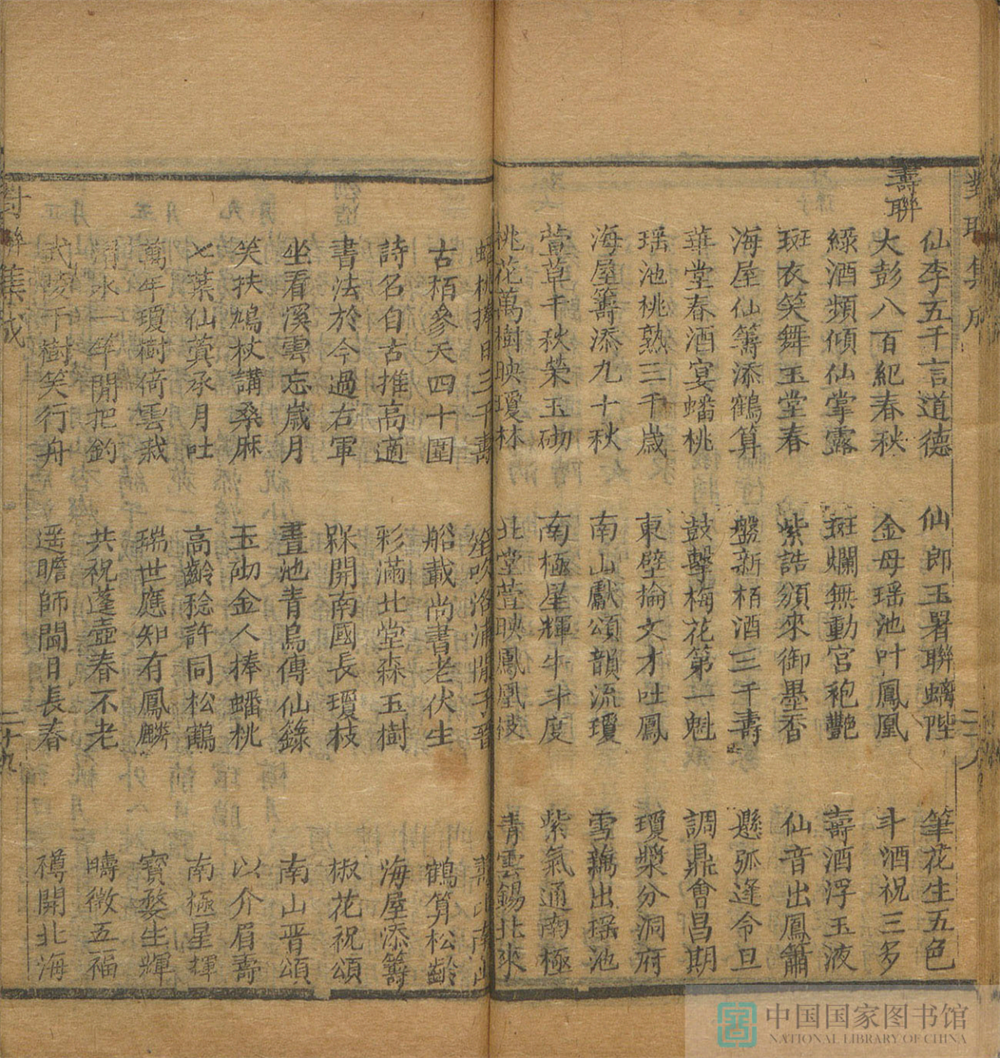 壽聯
仙李五千言道德 仙郎玉署聯螭陛 筆花生五色
大彭八百紀春秋 金母瑶池叶鳳凰 斗酒祝三多
綠酒頻傾仙掌露 斑斕無動宫袍艷 壽酒浮玉液
斑衣笑舞玉堂春 紫誥頒來御墨香 仙音出鳳簫
海屋仙籌添鶴算 盤新栢酒三千壽 懸弧逢令旦
華堂春酒宴蟠桃 鼓擊梅花第一魁 調鼎會昌期
瑶池桃熟三千歲 東壁掄文才吐鳳 瓊漿分洞府
海屋籌添九十秋 南山獻頌韻流瓊 雪藕出瑶池
萱草千秋榮玉砌 南極星輝牛斗度 紫氣通南極
桃花萬樹映瓊林 北堂萱映鳳凰枝 青雲錫北來
蟠桃捧日三千 笙吹 子晉
古栢參天四十圍 船載尚書老伏生 鶴算松齡
詩名自古推高適 彩滿北堂森玉樹 海屋添籌
書法於今過右軍 槑開南國長瓊枝 椒花祝頌
坐看溪雲忘歲月 晝池青鳥傳仙籙 南山晋頌
笑扶鳩杖講桑麻 玉砌金人捧蟠桃 以介眉壽
七葉仙蓂承月吐 高齡稔許同松鶴 南極星揮
萬年瓊樹倚雲栽 瑞世應知有鳳麟 寳婺生輝
水一竿閒把釣 共祝蓬壺春不老 疇徵五福
武陵下樹笑行舟 遥瞻師閫日長春 樽開北海
對聯集成
二十九
對聯集成
二十八
中国国家图书馆
NATIONAL LIBRARY OF CHINA